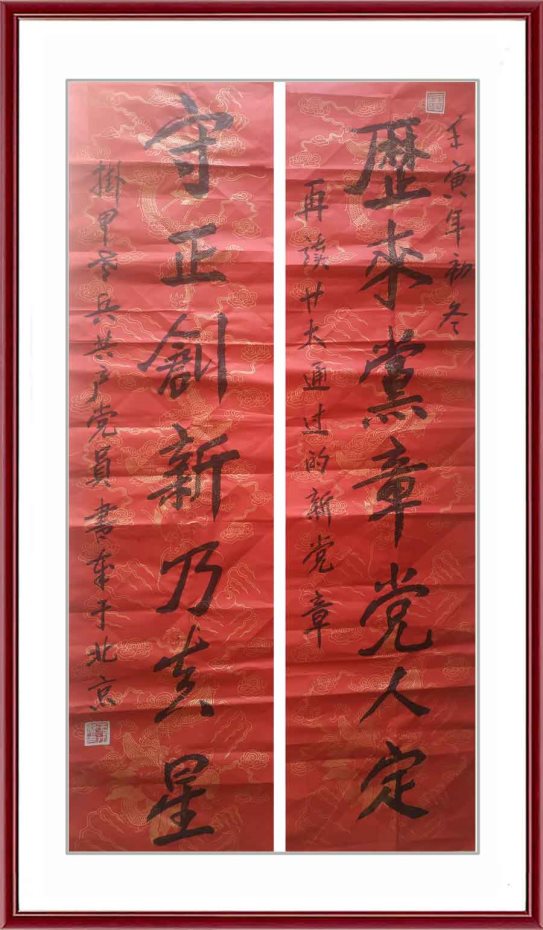 壬寅年初冬
歷來黨章党人定
再读廿大通过的新党章
守正創新乃真星
掛甲老兵共产党員書奉于北京